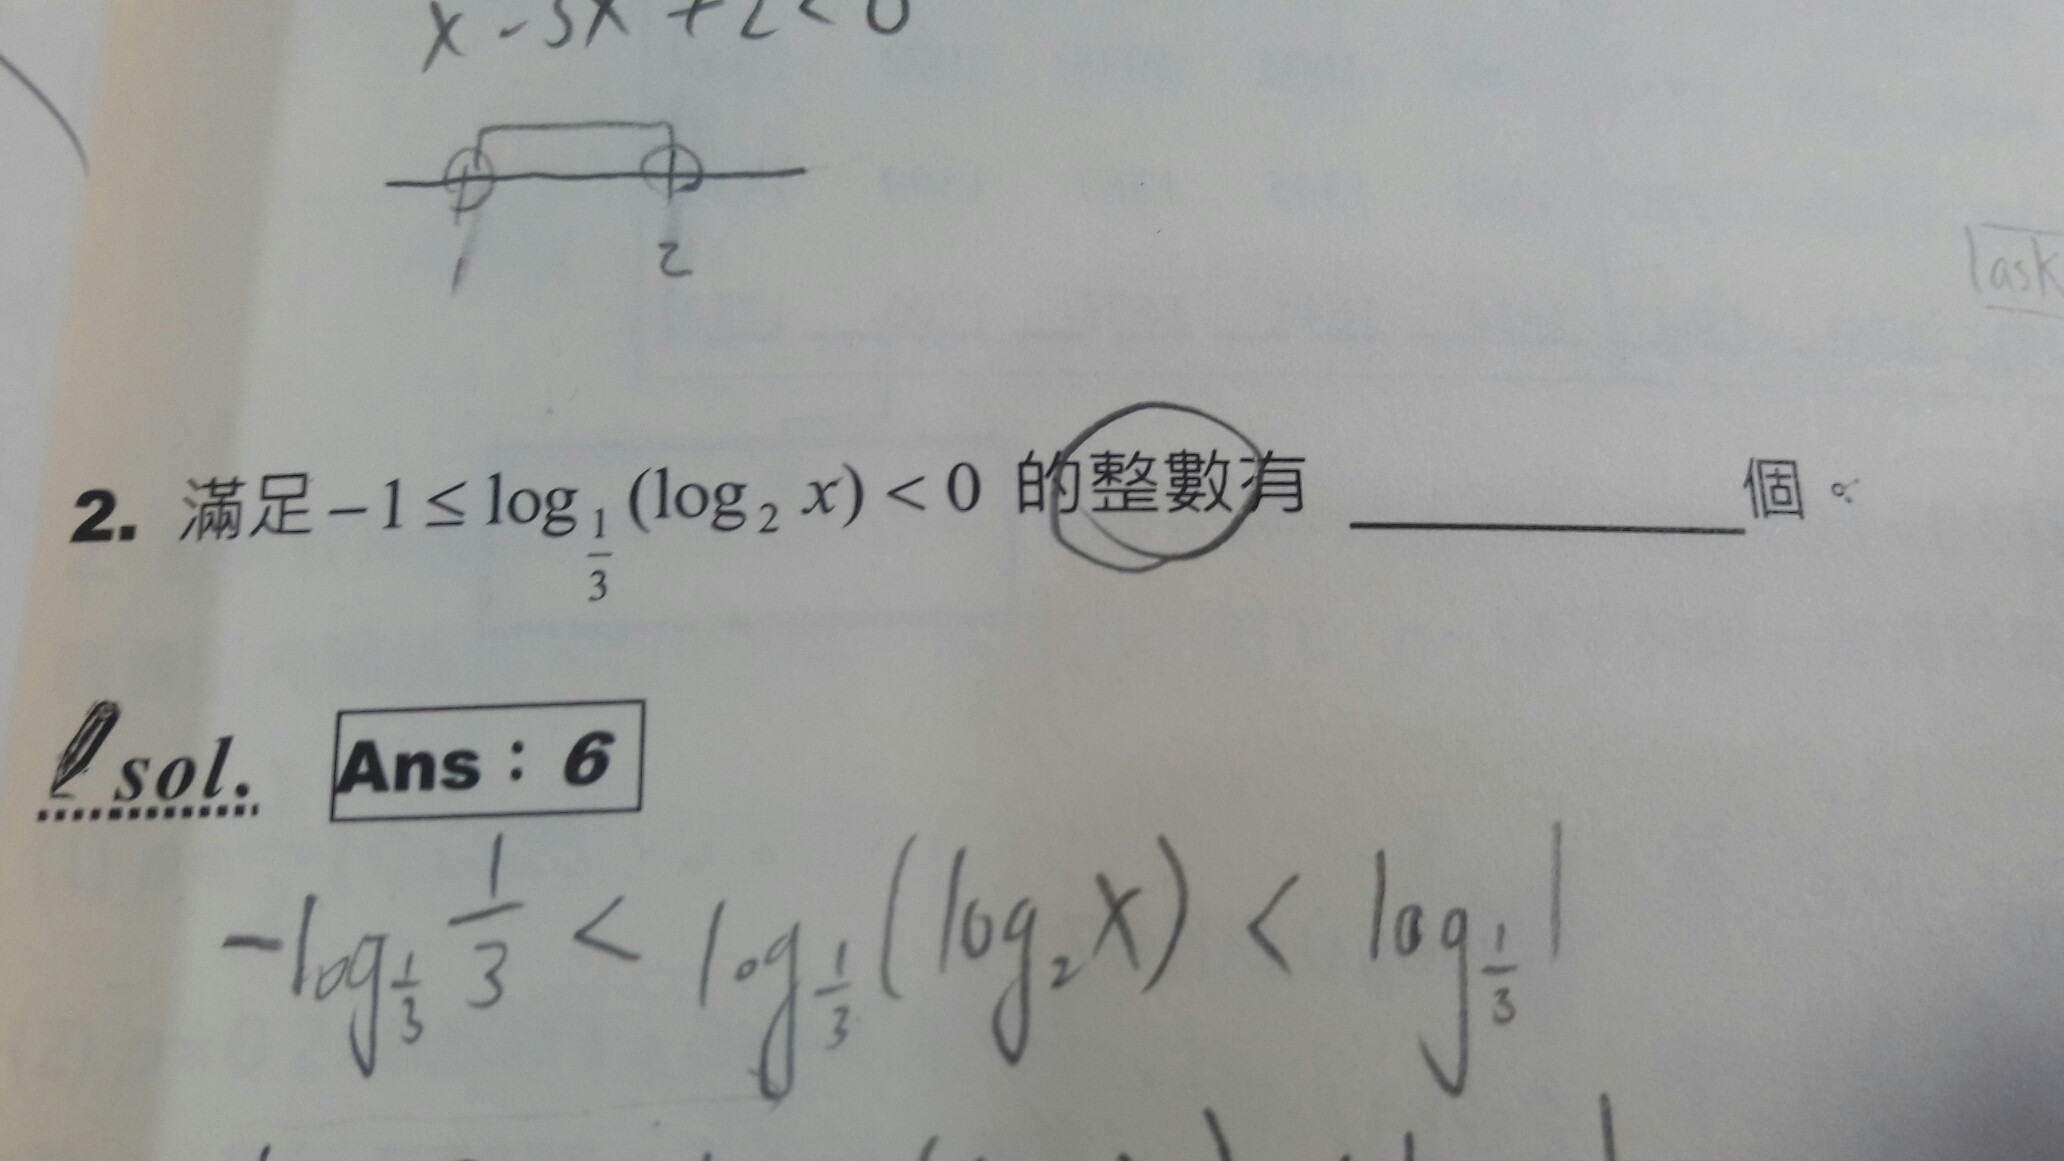 x - 3x + 2 < 0
1 2
lask
2. 滿足 -1 ≤ log_{1/3} (log_2 x) < 0 的整數有 ________ 個。
sol. Ans：6
-log_{1/3} 1/3 < log_{1/3} (log_2 x) < log_{1/3} 1